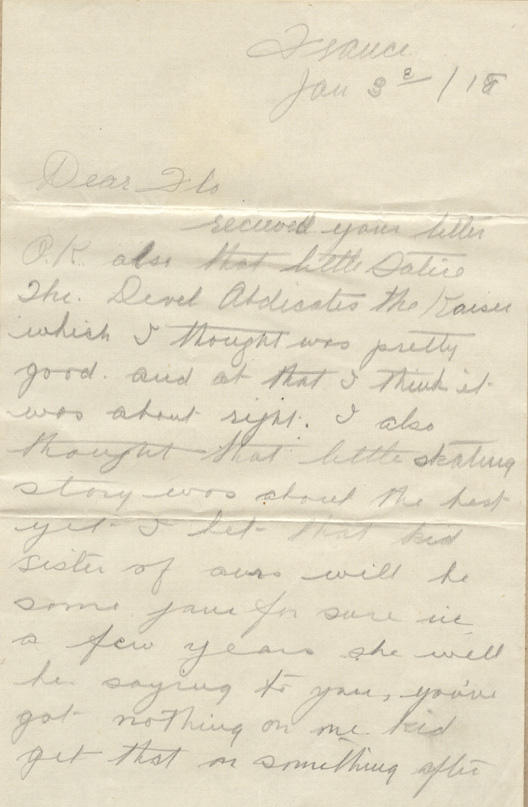 France
Jan 3ᵈ / 18
Dear Flo
recieved your letter
O.K. also that little Satire
The Devel Abdicates the Kaiser
which I thought was pretty
good. and at that I think it
was about right. I also
thought that little skating
story was about the best
yet I bet that kid
sister of ours will be
some jane for sure in
a few years she will
be saying to you, you've
got nothing on me kid
get that or something after